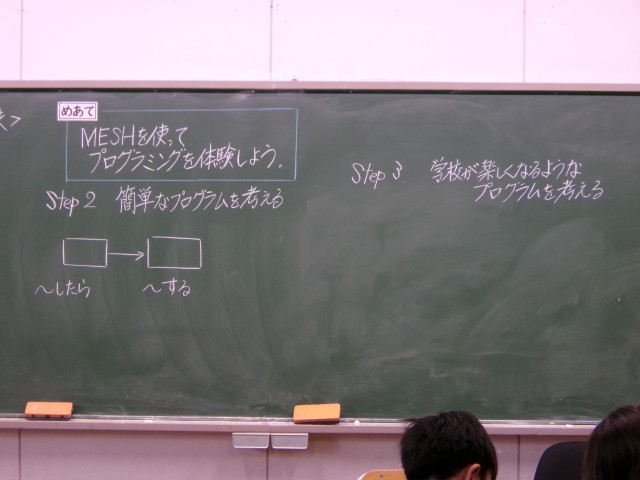 めあて
MESHを使って
プログラミングを体験しよう。
Step 2 簡単なプログラムを考える
〜したら
〜する
Step 3 学校が楽しくなるような
プログラムを考える